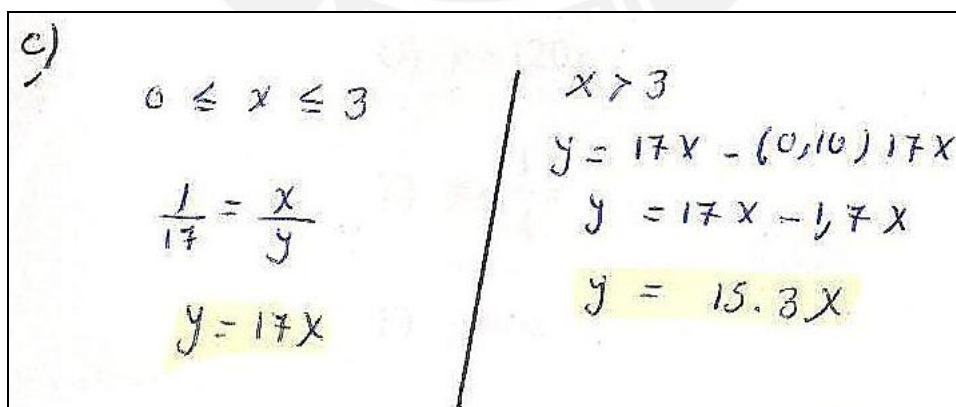 c)
0 ≤ x ≤ 3
1/17 = x/y
y = 17x
x > 3
y = 17x - (0,10) 17x
y = 17x - 1,7x
y = 15.3x